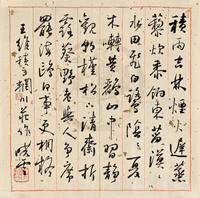 積雨空林煙火遲蒸
藜炊黍餉東菑漠〻
水田飛白鷺陰〻夏
木囀黃鸝山中習靜
觀朝槿松下清齋折
露葵野老與人爭席
罷海鷗何事更相疑
王維積雨輞川莊作